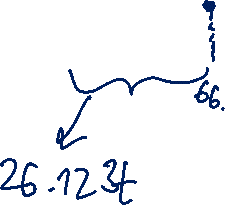 66.
26.123t